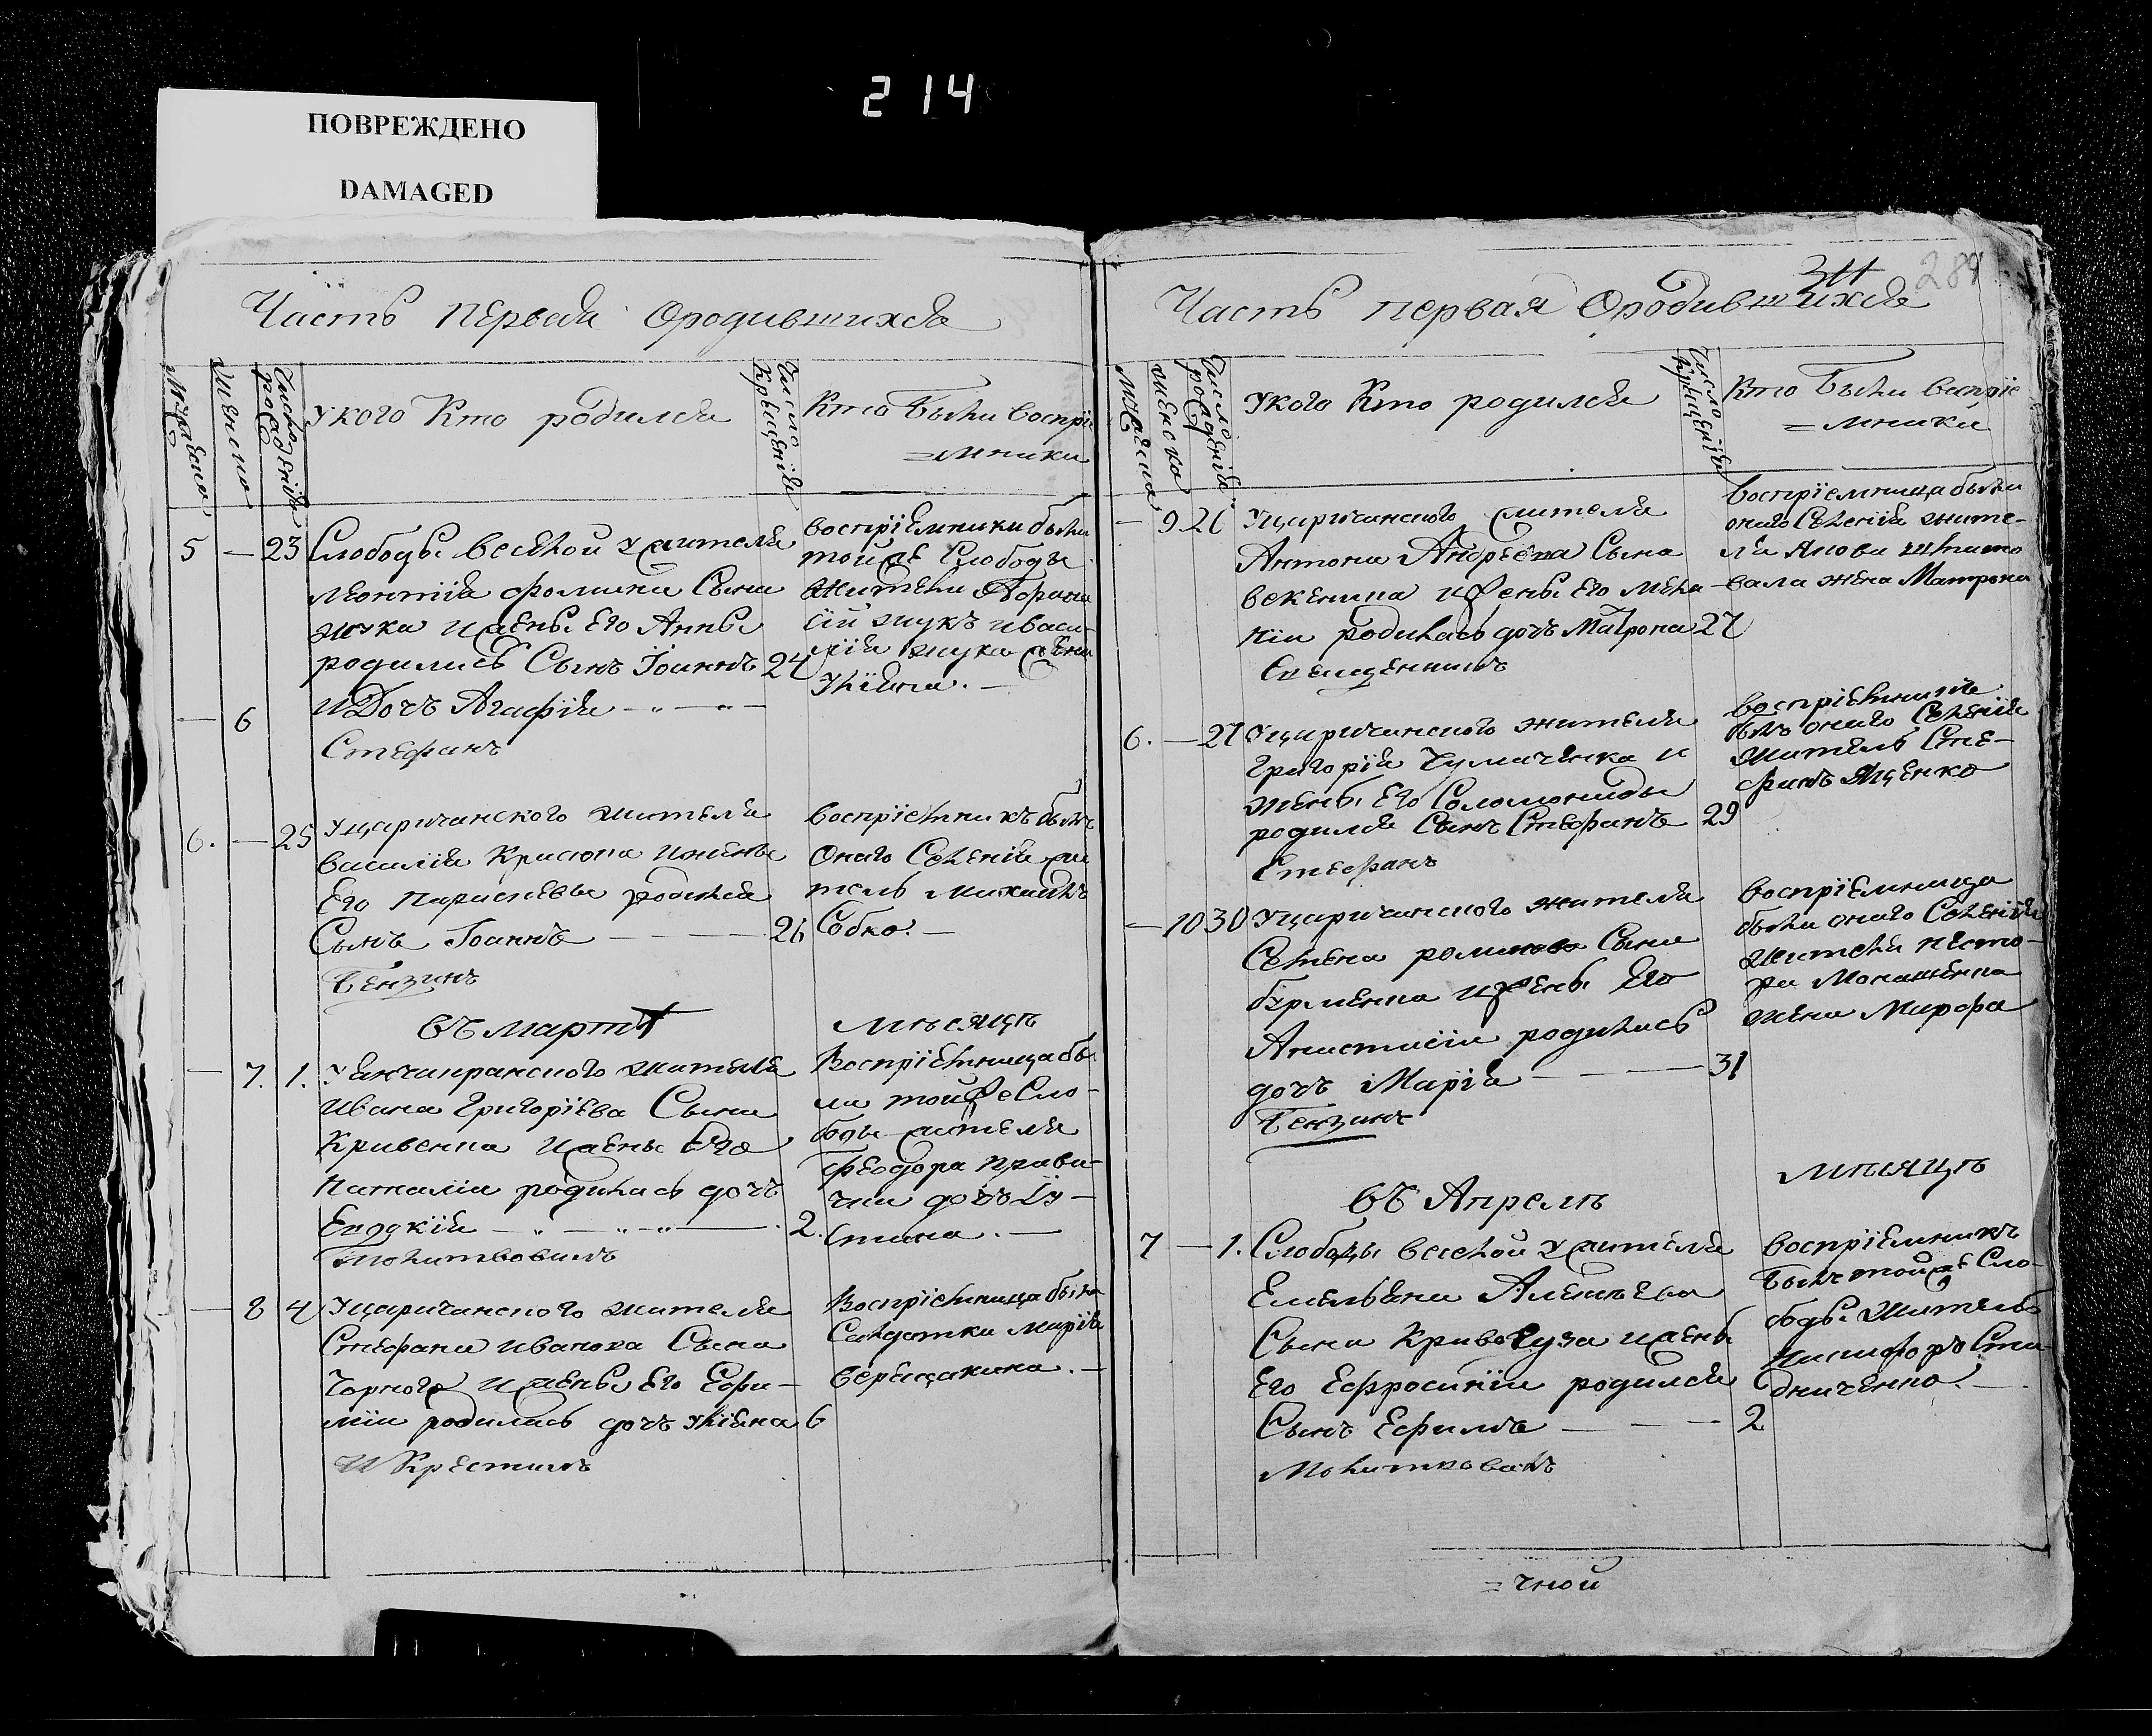 214
ПОВРЕЖДЕНО
DAMAGED
Часть первая ородившихся
Мужеска
Женска
Число рождения
Укого Кто родился
Число Крещения
Кто Были воспрі
=мники
5 — 23 Слободы веселой жителя
леонтія фомина Сына
жука ижены Его Анны
родились Сынъ Іоаннъ 24
— 6 И Дочъ Агафія
Стефанъ
воспріемники были
той же Слободы
жители
сій жукъ иваси-
лія жука жена
Уліяна. —
6. — 25 Уцаричанского жителя
василія Красюка ижены
Его Параскевы родился
Сынъ Іоаннъ — 26
воспріемникъ былъ
Оного Селенія жи
тель михаилъ
Собко. —
въ мартѣ мѣсяцѣ
— 7. 1. жителя
Ивана Григоріева Сына
Кривенка ижены Его
Наталіи родилась дочъ
Евдокія — 2.
Воспріемница бы
ла той же Сло-
боды жителя
феодора
дочъ Іу-
стина. —
— 8 4 Уцаричанского жителя
Стефана иванова Сына
Чорного ижены Его Ефи-
міи родилась дочъ Уліяна 6
И Крестилъ
Воспріемница была
Салдатка Марія
верещакина. —
311 289
Часть первая Ородившихся
Мужеска
женска
Число рождения
Укого Кто родился
Число Крещенія
Кто Были воспріе
=мники
— 9 26 Уцаричанского жителя
Антона Андреева Сына
ижены Его Мела
ніи родилась дочъ Матрона 27
Священникъ
Воспріемница была
оного Селенія жите-
ля Якова
вала жена Матрона
6. — 27 Уцаричанского жителя
Григорія Чумаченка и
жены Его Соломониды
родился Сынъ Стефанъ 29
Стефанъ
воспріемникъ
былъ оного Селенія
житель Сте-
фанъ Яценко
— 10 30 Уцаричанского жителя
Семена романова Сына
бурменка ижены Его
Анастасіи родилась
дочъ Марія — 31
воспріемница
была оного Селенія
жителя Несто-
ра Монашенка
жена Марфа
въ Апрелѣ мѣсяцѣ
7 — 1. Слободы веселой жителя
Емельяна Алексѣева
Сына Кривогуза ижены
Его Ефросиніи родился
Сынъ Ефимъ — 2
Молитвовалъ
воспріемникъ
былъ той же Сло-
боды Житель
Никифоръ Ста
дниченко. —
=чной